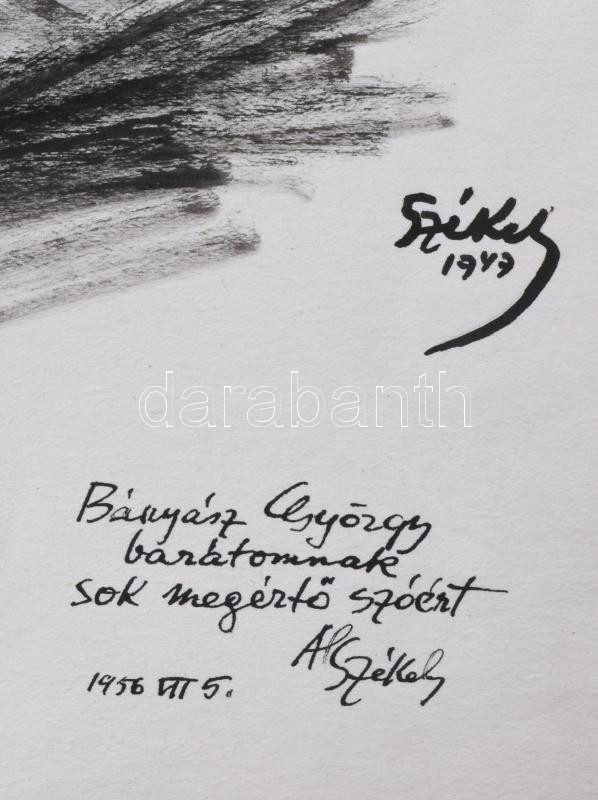 Székely
1947
darabanth
Bányász György
barátomnak
sok megértő szóért
Al Székely
1956 VII 5.